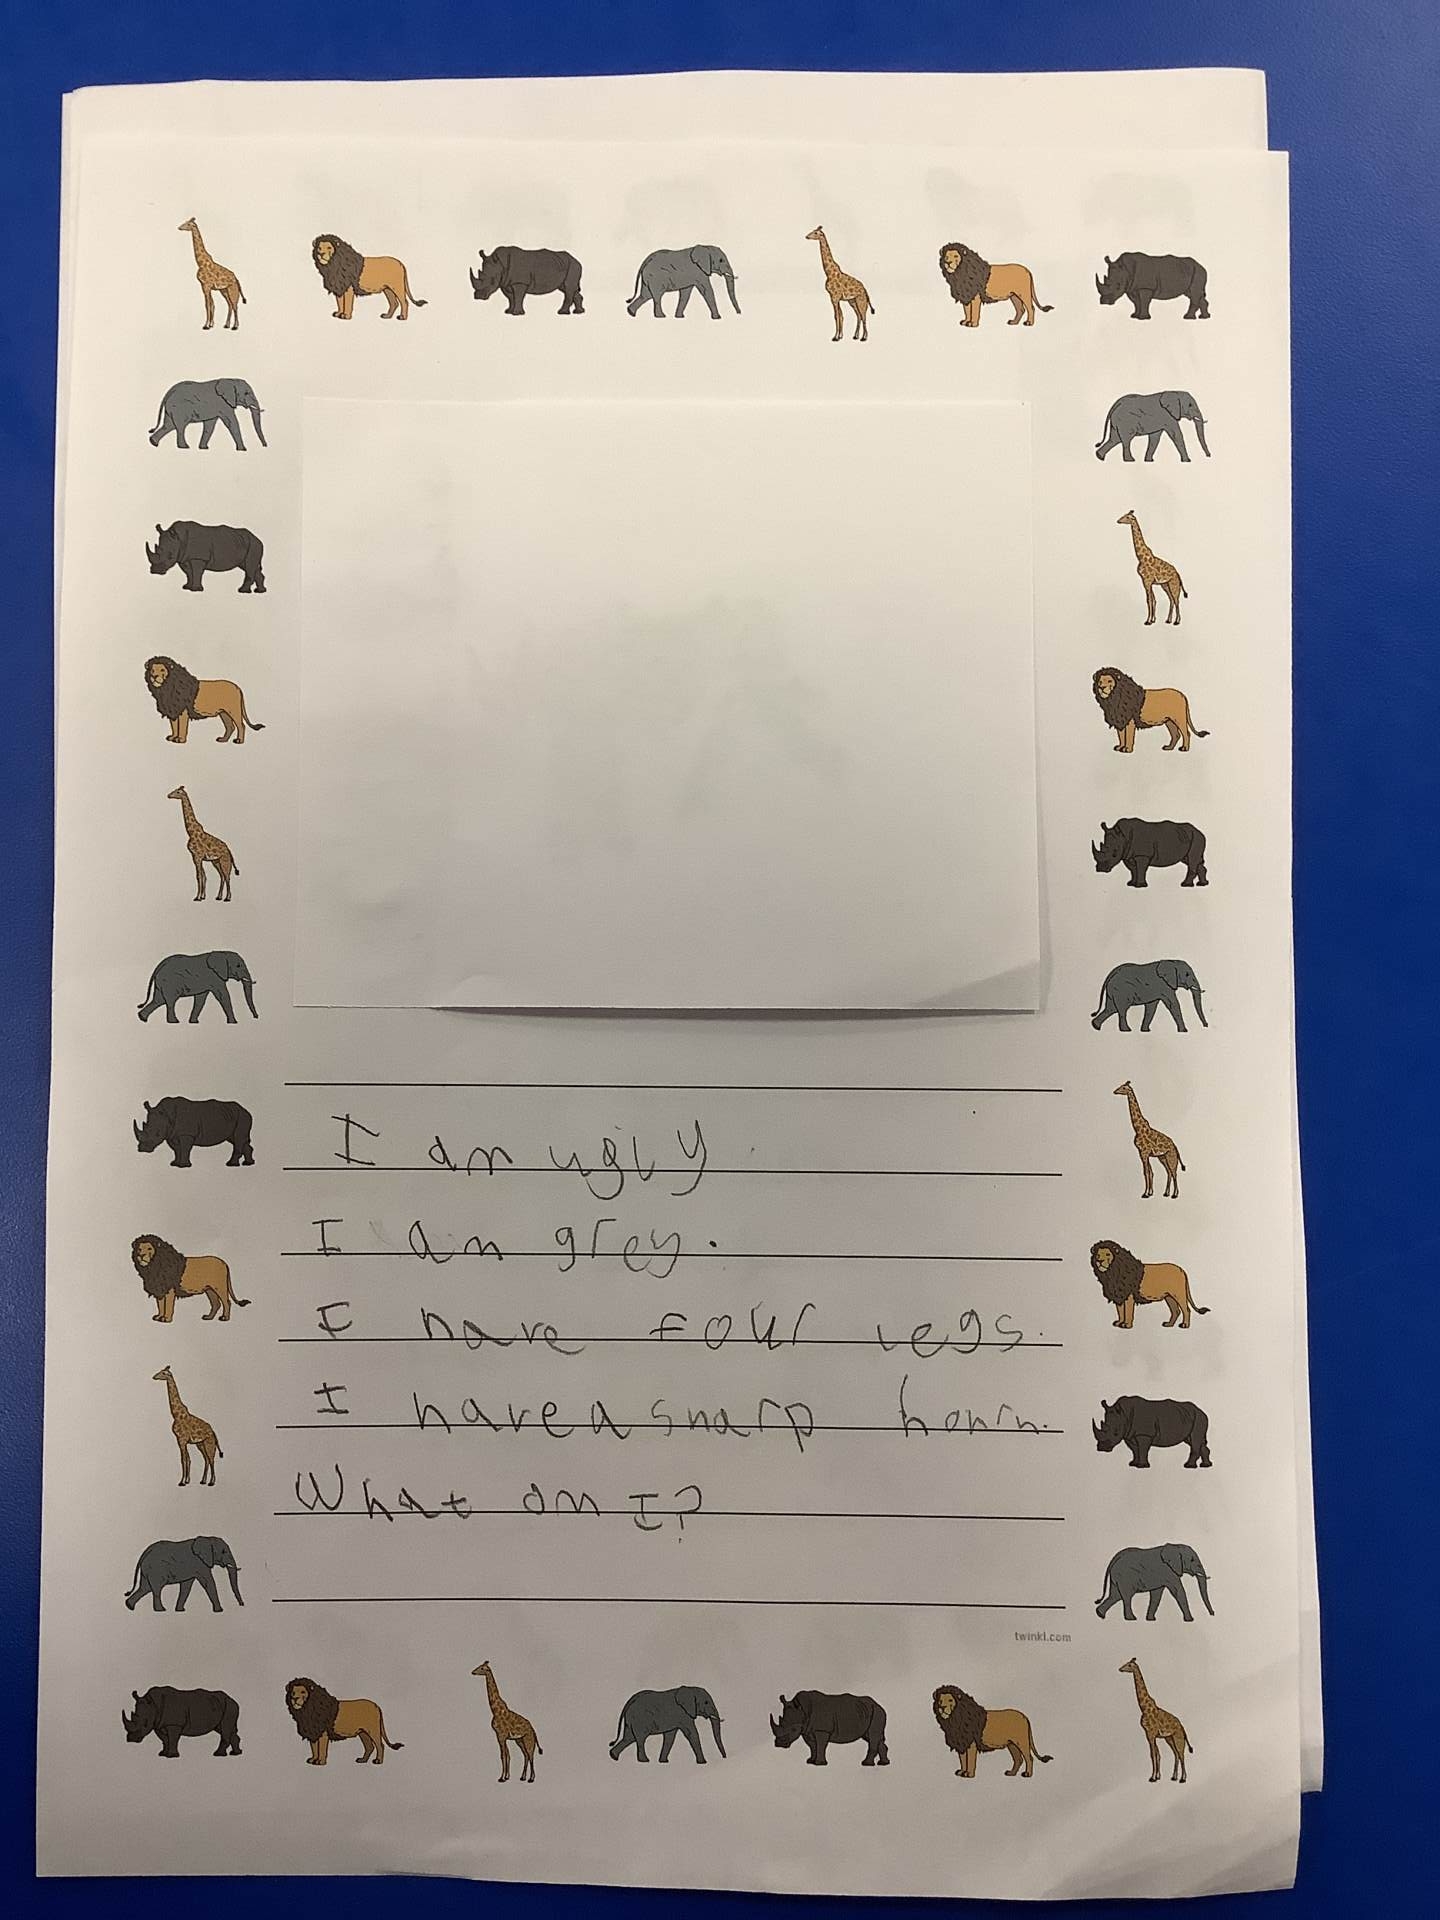 I am ugly.
I am grey.
I have four legs.
I have a sharp hourn.
What am I?
twinkl.com